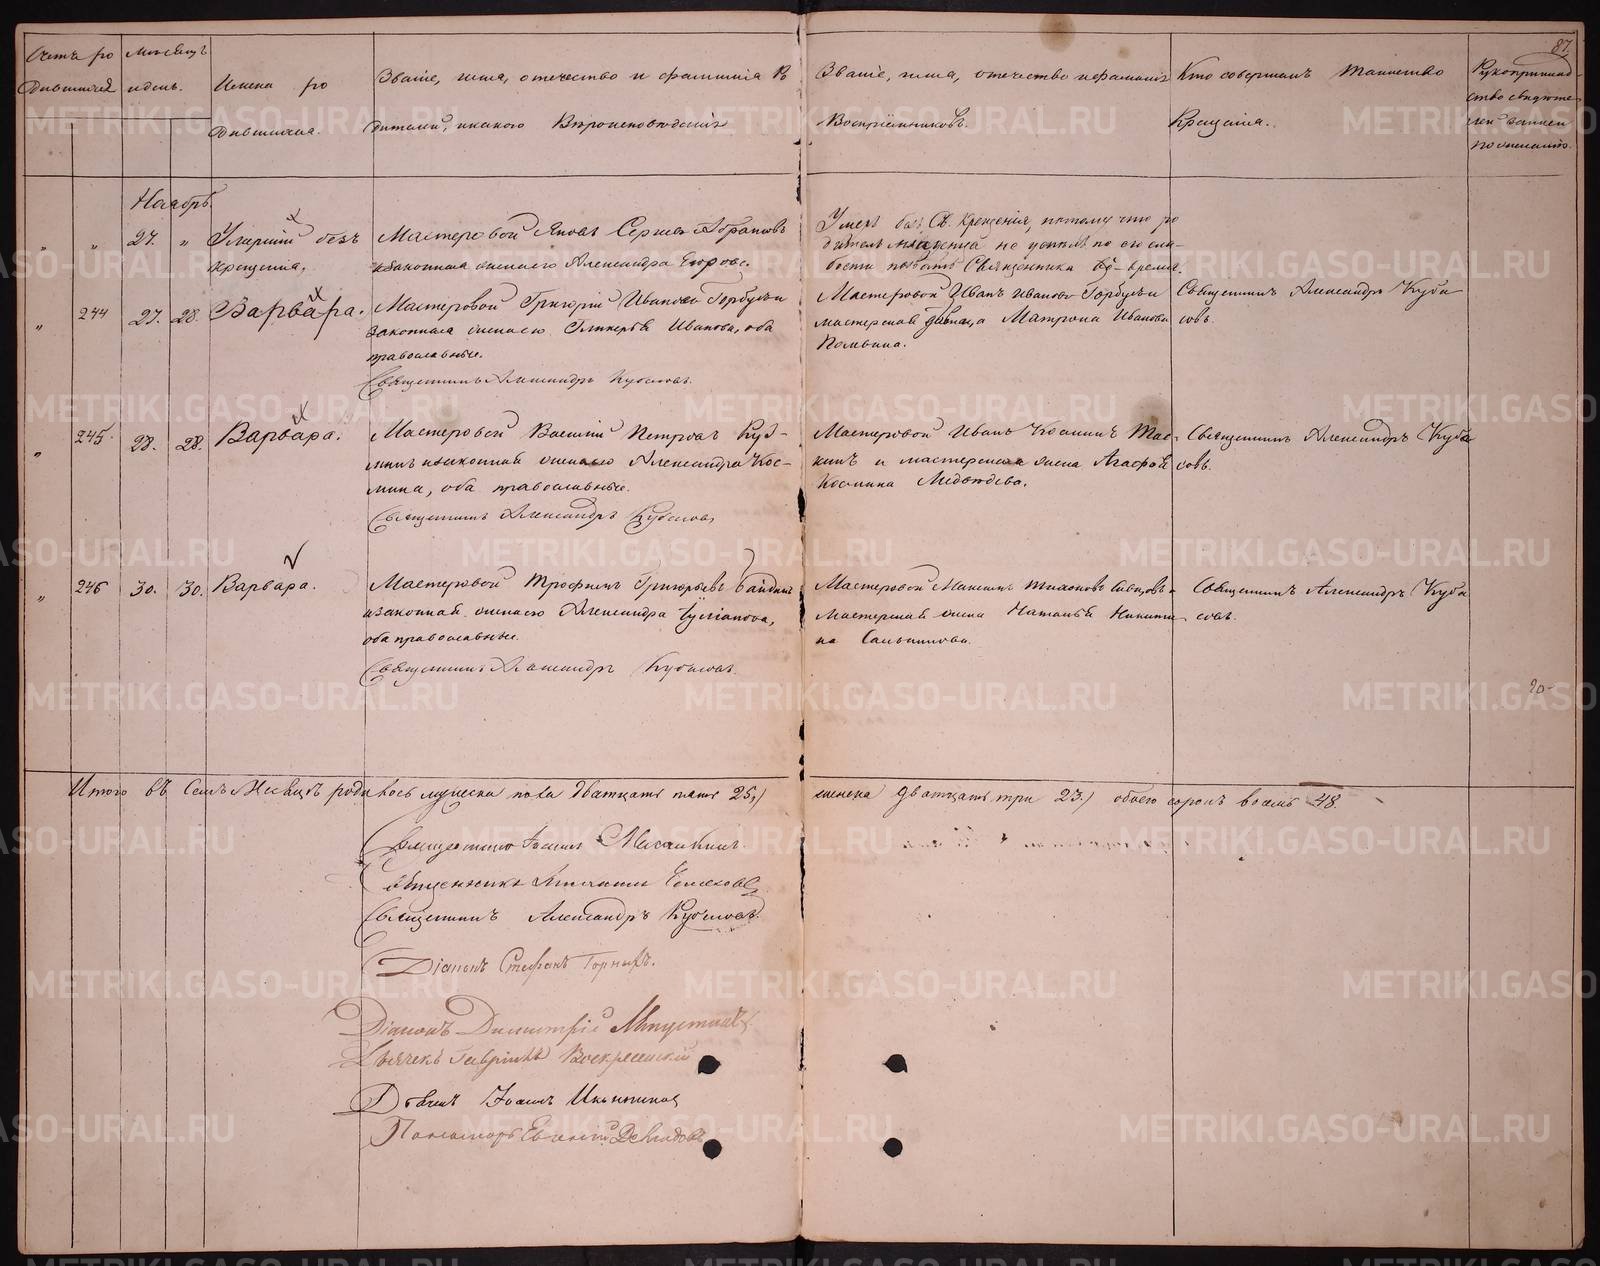 87
Счетъ ро
дившихся
Мѣсяцъ
и день.
Имена ро
дившихся.
Званіе, имя, отечество и фамилія Ро
дителей, и какого Вѣроисповѣданія
Званіе, имя, отечество и фамилія
Воспріемниковъ.
Кто совершалъ Таинство
Крещенія.
Рукоприклад-
ство свидѣте-
лей записи
по желанію.
Ноябрь.
" " 27. "
Умершій безъ
крещенія.
Мастеровой Яковъ Сергѣевъ Абрамовъ
и законная жена его Александра Егорова.
Умеръ безъ Св. Крещенія, потому что ро
дители младенца не успѣли по его сла-
бости позвать Священника во-время.
" 244 27. 28. Варвара.
Мастеровой Григорій Ивановъ Горбунъ и
законная жена его Гликерія Иванова, оба
православные.
Священникъ Александръ Кубасовъ.
Мастеровой Иванъ Ивановъ Горбунъ и
мастерская дѣвица Матрона Иванова
Священникъ Александръ Куба
совъ.
" 245. 28. 28. Варвара.
Мастеровой Василій Петровъ Куз-
минъ и законная жена его Александра Кос-
мина, оба православные.
Священникъ Александръ Кубасовъ
Мастеровой Иванъ Косминъ
и мастерская жена Агафья
Космина Медвѣдева.
Священникъ Александръ Куба
совъ.
" 246 30. 30. Варвара.
Мастеровой Трофимъ Григорьевъ
и законная жена его Александра Іуліанова,
оба православные.
Священникъ Александръ Кубасовъ.
Мастеровой Максимъ Тихоновъ
мастерская жена Наталья Никити
на
Священникъ Александръ Куба
совъ.
20-
Итого въ семъ Мѣсяцѣ родилось мужеска пола двадцать пять 25,)
женска двадцать три 23.) обоего сорокъ восемь 48.
Священникъ Іоаннъ
Священникъ
Священникъ Александръ Кубасовъ.
Діаконъ Стефанъ Горныхъ.
Діаконъ Димитрій
Дьячекъ Гавріилъ Воскресенскій
Дьячекъ Іоаннъ
Пономарь Евгеній
METRIKI.GASO-URAL.RU